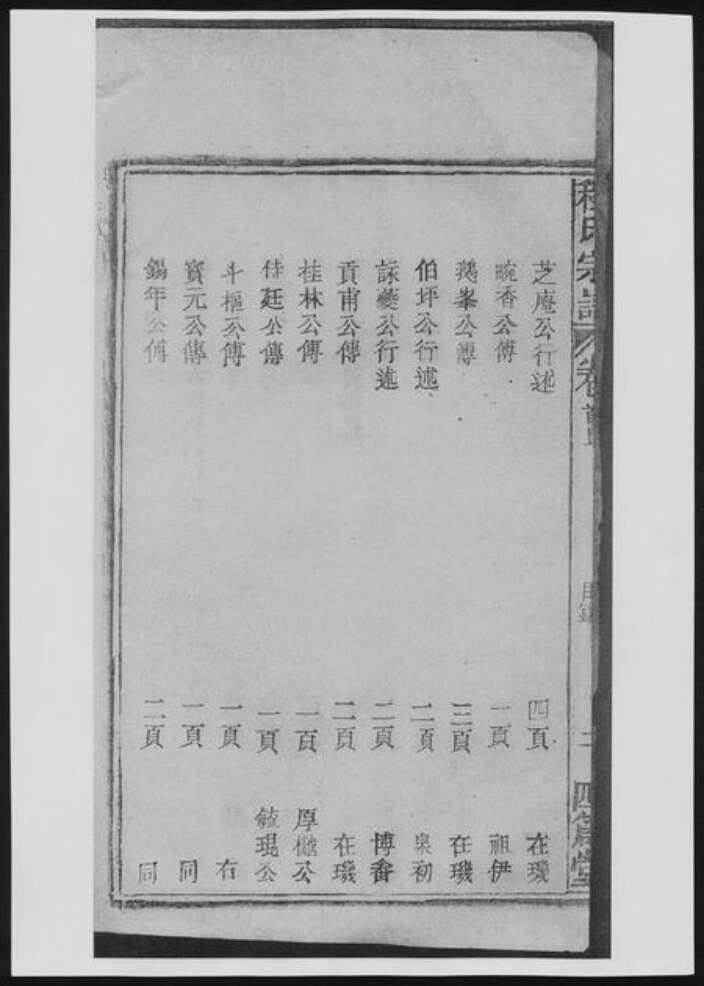 程氏宗譜 卷首上 目錄 二 四箴堂
芝庵公行述 四頁 在璣
畹香公傳 一頁 祖伊
鵝峯公傳 三頁 在璣
伯坪公行述 二頁 泉初
詠夔公行述 二頁 博番
貢甫公傳 二頁 在璣
桂林公傳 一頁 厚樾公
侍廷公傳 一頁 毓琨公
斗樞公傳 一頁 右
寳元公傳 一頁 同
錫年公傳 二頁 同